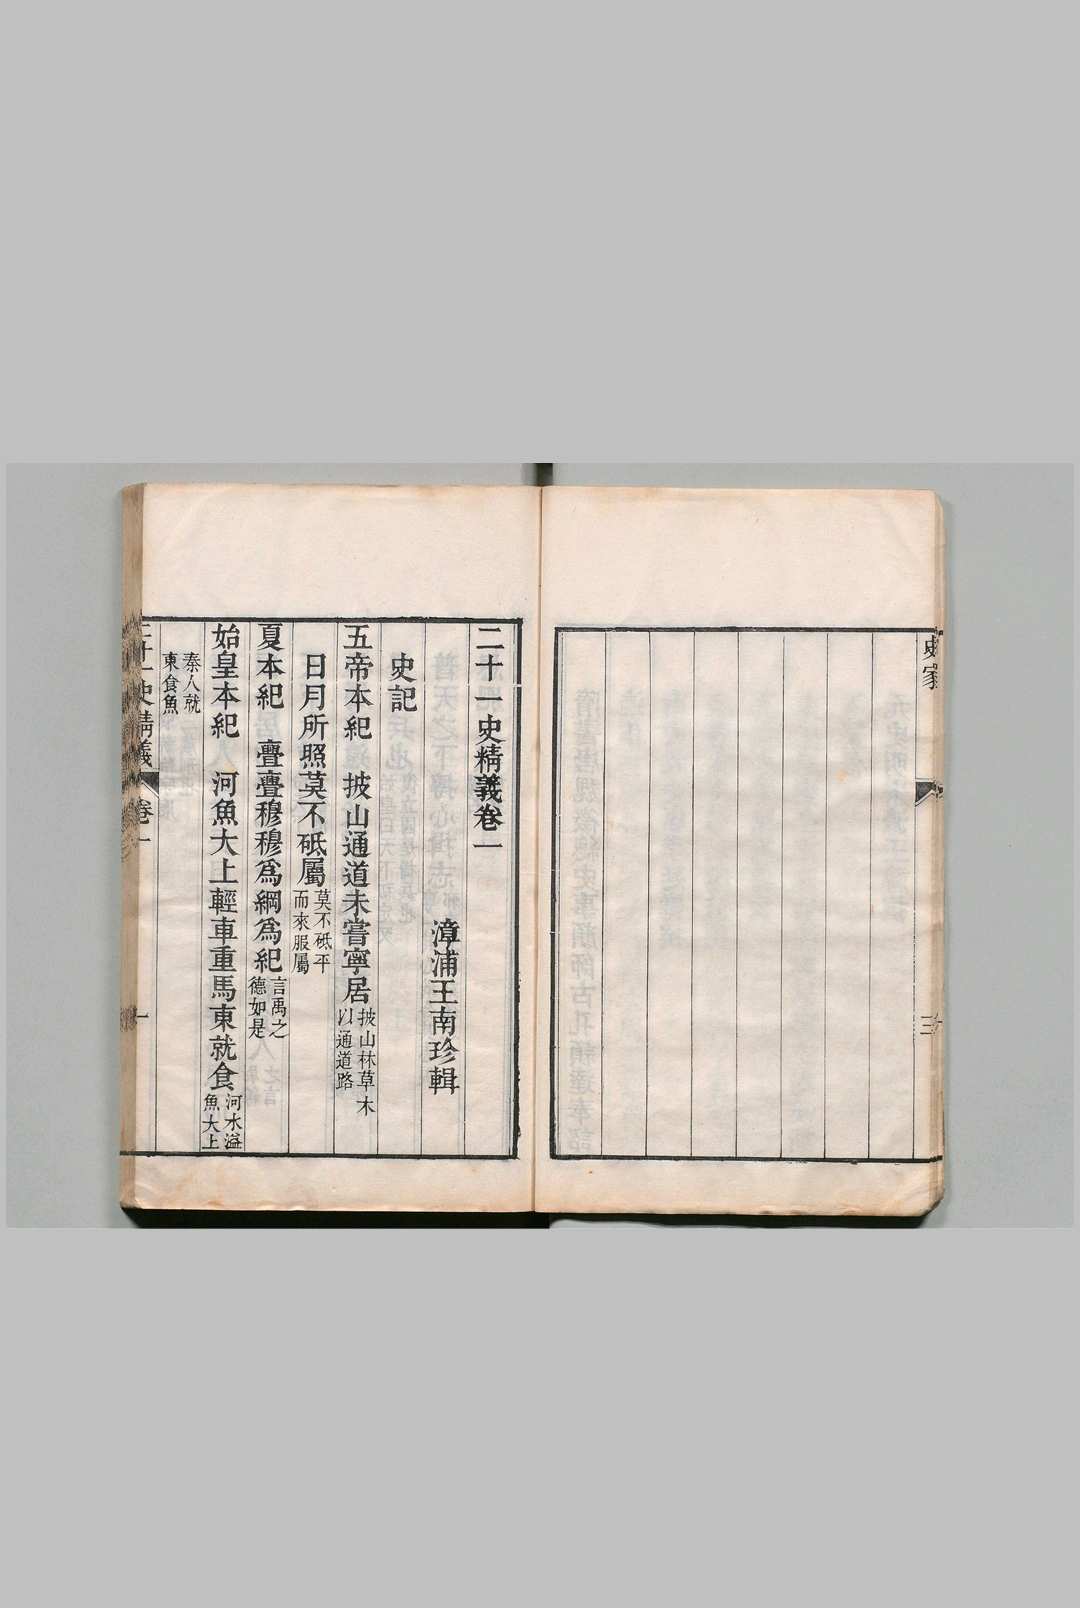 史家
三
二十一史精義卷一
漳浦王南珍輯
史記
五帝本紀　披山通道未嘗寧居披山林草木
以通道路
日月所照莫不砥屬莫不砥平
而來服屬
夏本紀　亹亹穆穆爲綱爲紀言禹之
德如是
始皇本紀　河魚大上輕車重馬東就食河水溢
魚大上
秦人就
東食魚
二十一史精義　卷一
一